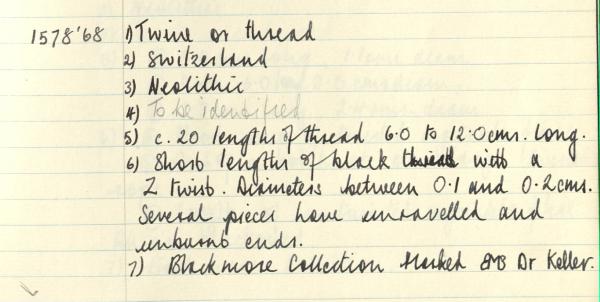 1578'68 1) Twine or thread
2) Switzerland
3) Neolithic
4) To be identified
5) c. 20 lengths of thread 6.0 to 12.0cms. long.
6) Short lengths of black thread with a
Z twist. Diameters between 0.1 and 0.2cms.
Several pieces have unravelled and
unburnt ends.
7) Blackmore Collection Marked Dr Keller.